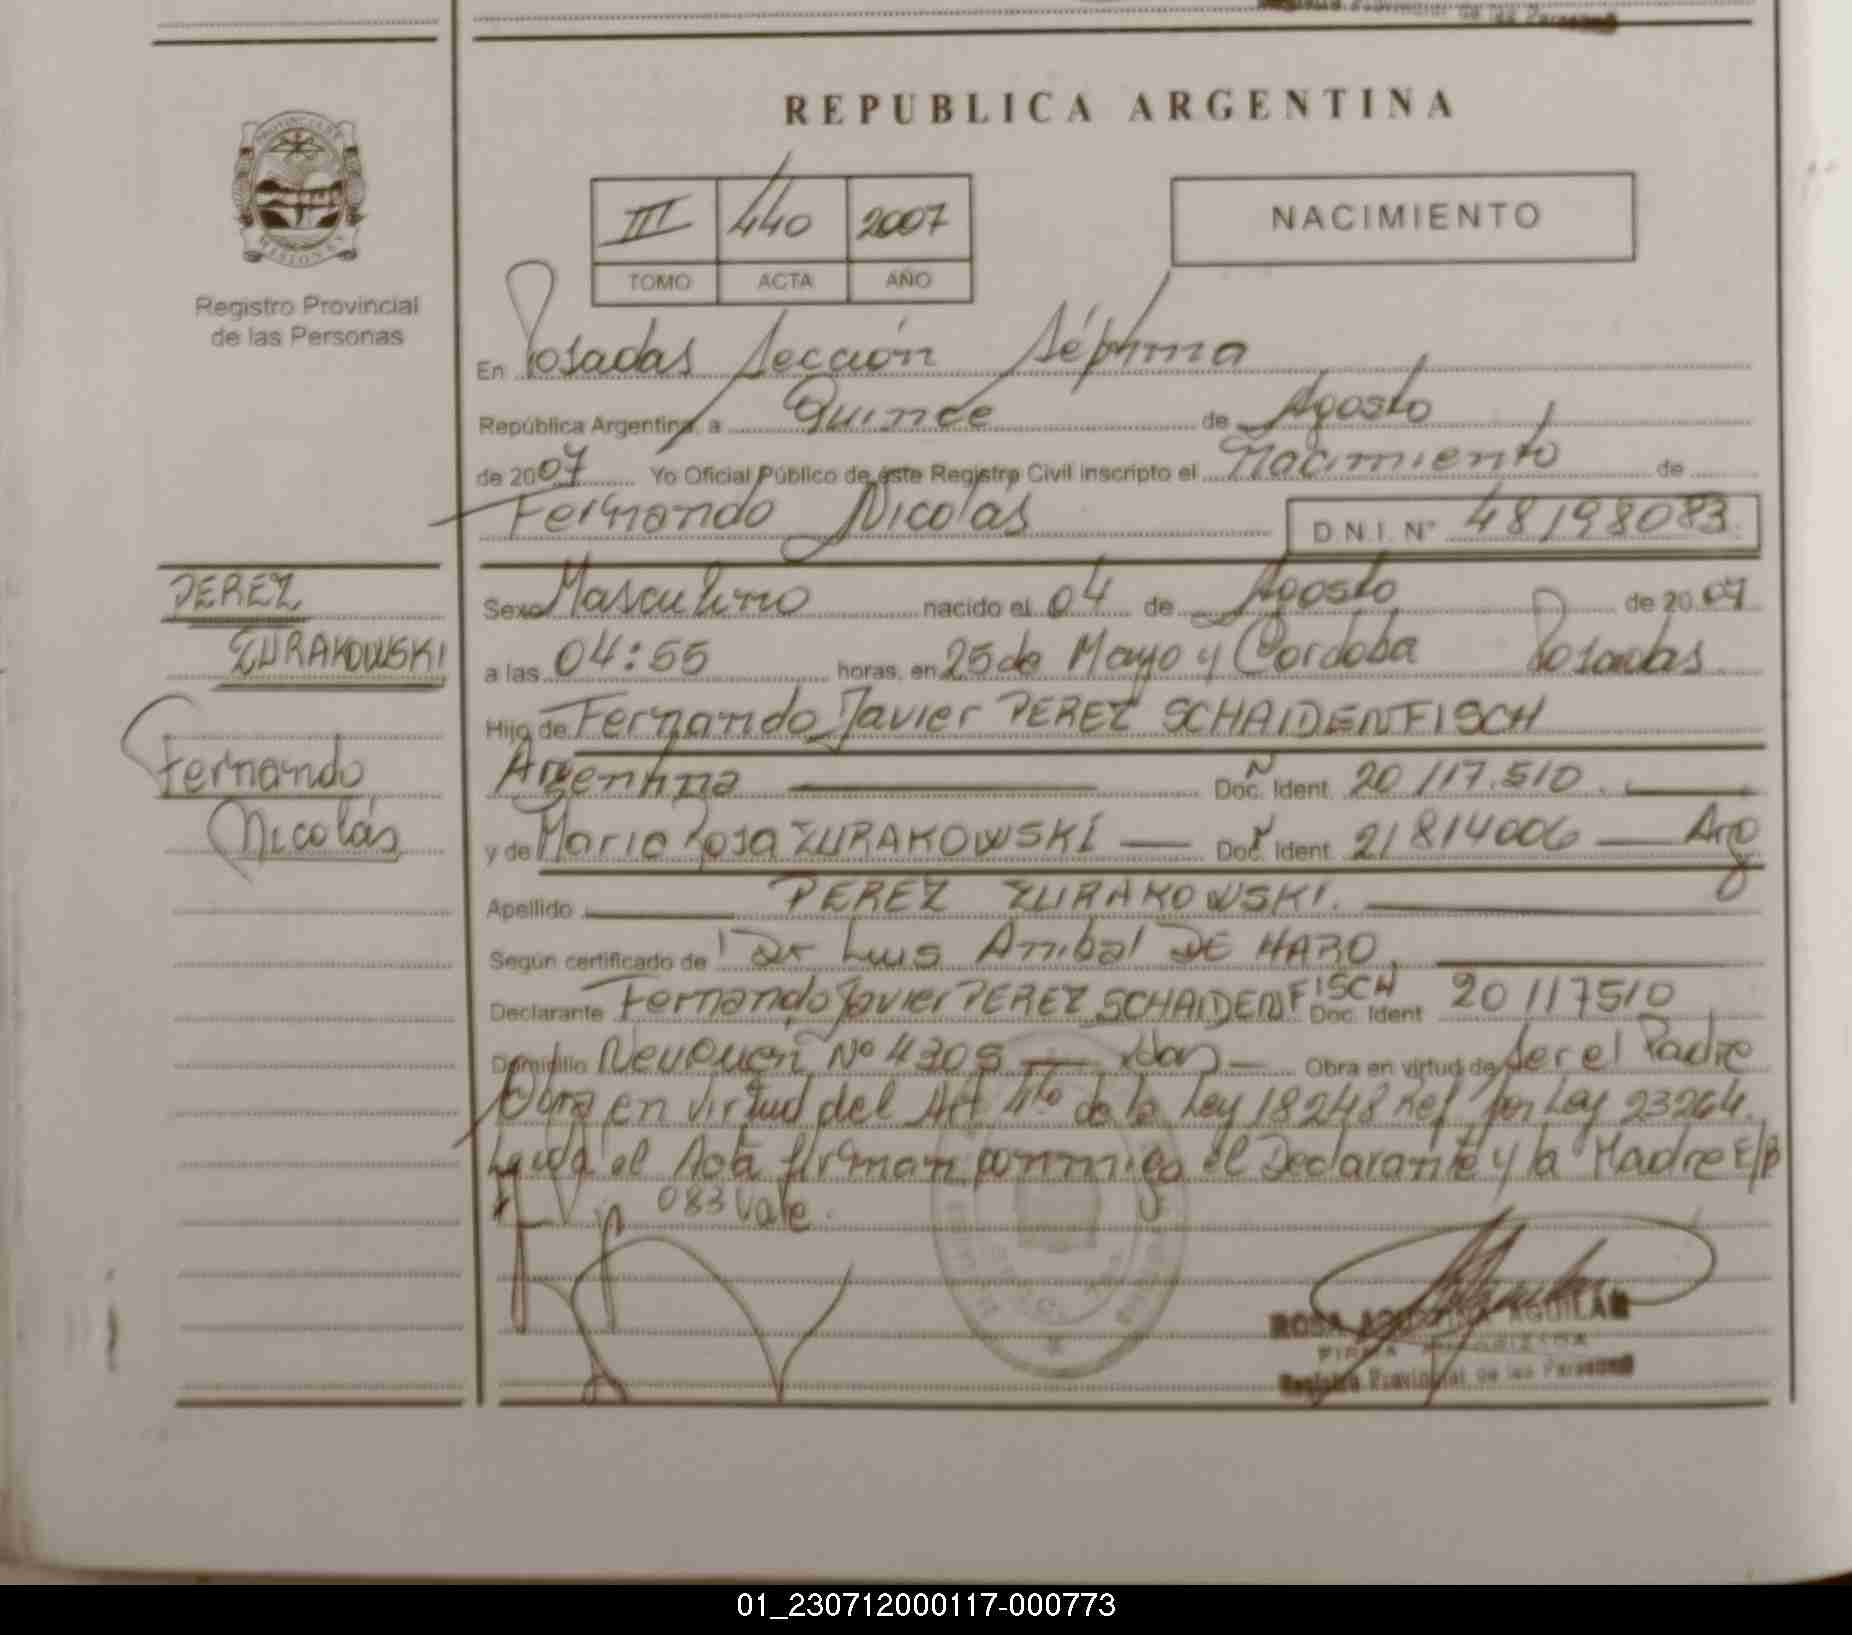 REPUBLICA ARGENTINA
PROVINCIA DE
MISIONES
Registro Provincial
de las Personas
III 440 2007
TOMO ACTA AÑO
NACIMIENTO
En Posadas Sección Séptima
República Argentina, a Quince de Agosto
de 2007 Yo Oficial Público de éste Registro Civil inscripto el Nacimiento de
Fernando Nicolás D.N.I. N° 48198083
PEREZ
ZURAKOWSKI
Fernando
Nicolás
Sexo Masculino nacido el 04 de Agosto de 2007
a las 04:55 horas, en 25 de Mayo y Cordoba Posadas
Hijo de Fernando Javier PEREZ SCHAIDENFISCH
Argentina Doc. Ident. 20117.510
y de Maria Rosa ZURAKOWSKI Doc. Ident. 21814006 Arg
Apellido PEREZ ZURAKOWSKI.
Según certificado de Dr Luis Anibal DE HARO
Declarante Fernando Javier PEREZ SCHAIDENFISCH Doc. Ident 20117510
Domicilio Neuquen Nº 4305 Obra en virtud de ser el Padre
Obra en virtud del Art 4to de la Ley 18248 Ref por Ley 23264.
Leida el Acta firman conmigo el Declarante y la Madre E/R
083 Vale.
ROSA AGUILAR
FIRMA AUTORIZADA
Registro Provincial de las Personas
01_230712000117-000773